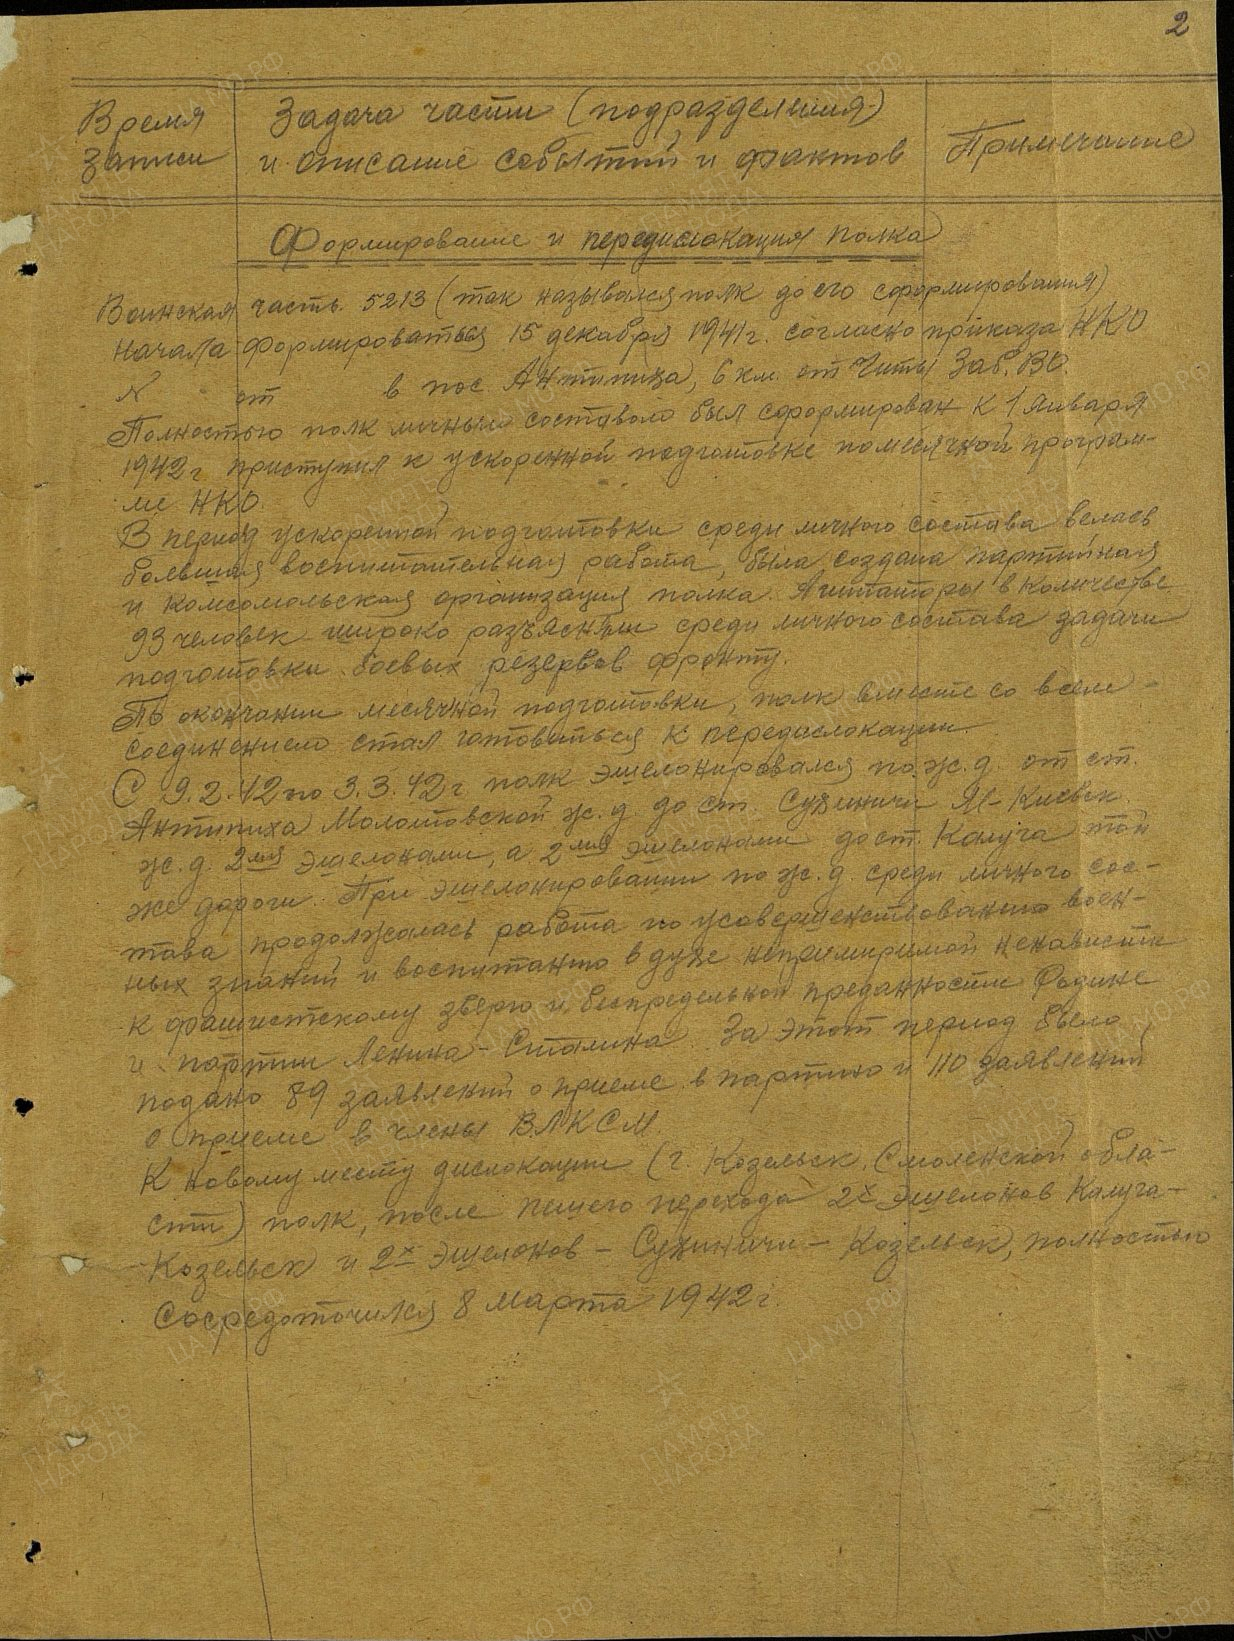 2
Время
Записи
Задача части (подразделения)
и описание событий и фактов
Примечание
Формирование и передислокация полка
Воинская часть 5213 (так назывался полк до его сформирования)
начала формироваться 15 декабря 1941 г. согласно приказа НКО
№ от в пос. Антипиха, 6 км. от Читы Заб. ВО.
Полностью полк личным составом был сформирован к 1 января
1942 г приступил к ускоренной подготовке помесячной програм-
ме НКО.
В период ускоренной подготовки среди личного состава велась
большая воспитательная работа, была создана партийная
и комсомольская организация полка. Агитаторы в количестве
93 человек широко разъясняли среди личного состава задачи
подготовки боевых резервов фронту.
По окончании месячной подготовки, полк вместе со всем
соединением стал готовиться к передислокации.
С 9.2.42 по 3.3.42 г полк эшелонировался по ж.д. от ст.
Антипиха Молотовской ж.д. до ст. Сухиничи М-Киевск.
ж.д. 2мя эшелонами, а 2мя эшелонами до ст. Калуга той
же дороги. При эшелонировании по ж.д. среди личного сос-
тава продолжалась работа по усовершенствованию воен-
ных знаний и воспитанию в духе непримиримой ненависти
к фашистскому зверю и беспредельной преданности Родине
и партии Ленина-Сталина. За этот период было
подано 89 заявлений о приеме в партию и 110 заявлений
о приеме в члены ВЛКСМ.
К новому месту дислокации (г. Козельск, Смоленской обла-
сти) полк, после пешего перехода 2х эшелонов Калуга-
Козельск и 2х эшелонов - Сухиничи - Козельск, полностью
сосредоточился 8 марта 1942 г.
ПАМЯТЬ
НАРОДА
ЦАМО.РФ